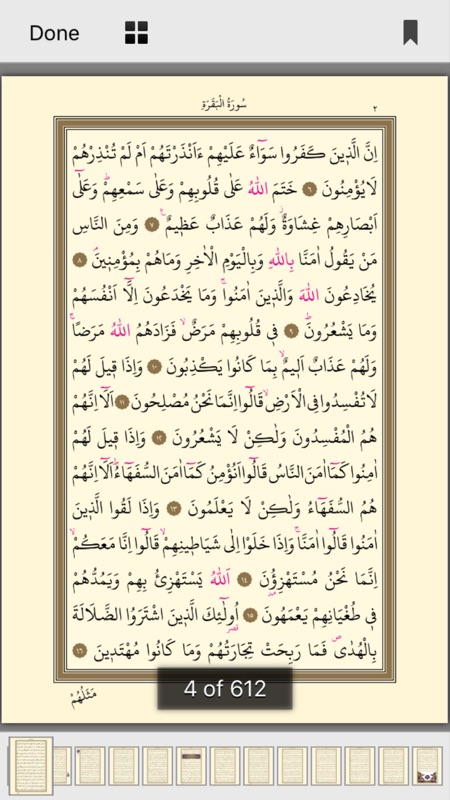 Done
سُورَةُ الْبَقَرَةِ
٢
اِنَّ الَّذٖينَ كَفَرُوا سَوَٓاءٌ عَلَيْهِمْ ءَاَنْذَرْتَهُمْ اَمْ لَمْ تُنْذِرْهُمْ
لَا يُؤْمِنُونَ ٦ خَتَمَ اللّٰهُ عَلٰى قُلُوبِهِمْ وَعَلٰى سَمْعِهِمْؕ وَعَلٰٓى
اَبْصَارِهِمْ غِشَاوَةٌؗ وَلَهُمْ عَذَابٌ عَظٖيمٌ ٧ وَمِنَ النَّاسِ
مَنْ يَقُولُ اٰمَنَّا بِاللّٰهِ وَبِالْيَوْمِ الْاٰخِرِ وَمَاهُمْ بِمُؤْمِنٖينَۘ ٨
يُخَادِعُونَ اللّٰهَ وَالَّذٖينَ اٰمَنُواۚ وَمَا يَخْدَعُونَ اِلَّٓا اَنْفُسَهُمْ
وَمَا يَشْعُرُونَؕ ٩ فٖى قُلُوبِهِمْ مَرَضٌۙ فَزَادَهُمُ اللّٰهُ مَرَضًاۚ
وَلَهُمْ عَذَابٌ اَلٖيمٌۙ بِمَا كَانُوا يَكْذِبُونَ ١٠ وَاِذَا قٖيلَ لَهُمْ
لَا تُفْسِدُوا فِى الْاَرْضِۙ قَالُٓوا اِنَّمَا نَحْنُ مُصْلِحُونَ ١١ اَلَٓا اِنَّهُمْ
هُمُ الْمُفْسِدُونَ وَلٰكِنْ لَا يَشْعُرُونَ ١٢ وَاِذَا قٖيلَ لَهُمْ
اٰمِنُوا كَمَٓا اٰمَنَ النَّاسُ قَالُٓوا اَنُؤْمِنُ كَمَٓا اٰمَنَ السُّفَهَٓاءُؕ اَلَٓا اِنَّهُمْ
هُمُ السُّفَهَٓاءُ وَلٰكِنْ لَا يَعْلَمُونَ ١٣ وَاِذَا لَقُوا الَّذٖينَ
اٰمَنُوا قَالُٓوا اٰمَنَّاۚ وَاِذَا خَلَوْا اِلٰى شَيَاطٖينِهِمْۙ قَالُٓوا اِنَّا مَعَكُمْۙ
اِنَّمَا نَحْنُ مُسْتَهْزِؤُ۫نَ ١٤ اَللّٰهُ يَسْتَهْزِئُ بِهِمْ وَيَمُدُّهُمْ
فٖى طُغْيَانِهِمْ يَعْمَهُونَ ١٥ اُو۬لٰٓئِكَ الَّذٖينَ اشْتَرَوُا الضَّلَالَةَ
بِالْهُدٰىࣕ فَمَا رَبِحَتْ تِجَارَتُهُمْ وَمَا كَانُوا مُهْتَدٖينَ ١٦
مَثَلُهُمْ
4 of 612